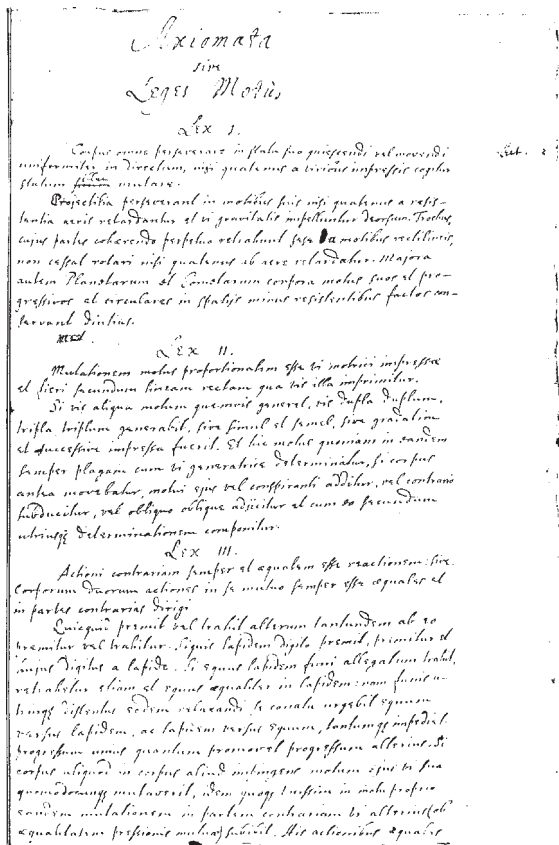 Axiomata
sive
Leges Motûs
Lex I.
Corpus omne perseverare in statu suo quiescendi vel movendi
uniformiter in directum, nisi quatenus a viribus impressis cogitur
statum illum mutare.
Projectilia perseverant in motibus suis nisi quatenus a resis-
tentia aeris retardantur et vi gravitatis impelluntur deorsum. Trochus,
cujus partes cohærendo perpetuo retrahunt sese a motibus rectilineis,
non cessat rotari nisi quatenus ab aere retardatur. Majora
autem Planetarum et Cometarum corpora motus suos et pro-
gressivos et circulares in spatijs minus resistentibus factos con-
servant diutius.
Lex II.
Mutationem motus proportionalem esse vi motrici impressæ
et fieri secundum lineam rectam qua vis illa imprimitur.
Si vis aliqua motum quemvis generet, vis dupla duplum,
tripla triplum generabit, sive simul et semel, sive gradatim
et successive impressa fuerit. Et hic motus quoniam in eandem
semper plagam cum vi generatrice determinatur, si corpus
antea movebatur, motui ejus vel conspiranti additur, vel contrario
subducitur, vel obliquo oblique adjicitur et cum eo secundum
utriusq determinationem componitur.
Lex III.
Actioni contrariam semper et æqualem esse reactionem: sive
corporum duorum actiones in se mutuo semper esse æquales et
in partes contrarias dirigi
Quicquid premit vel trahit alterum tantundem ab eo
premitur vel trahitur. Siquis lapidem digito premit, premitur et
hujus digitus a lapide. Si equus lapidem funi allegatum trahit,
retrahetur etiam et equus æqualiter in lapidem: nam funis u-
trinq distentus eodem relaxandi se conatu urgebit equum
versus lapidem, ac lapidem versus equum, tantumq impediet
progressum unius quantum promovet progressum alterius. Si
corpus aliquod in corpus aliud impingens motum ejus vi sua
quomodocunq mutaverit, idem quoq vicissim in motu proprio
eandem mutationem in partem contrariam vi alterius (ob
æqualitatem pressionis mutuæ) subibit. His actionibus æquales